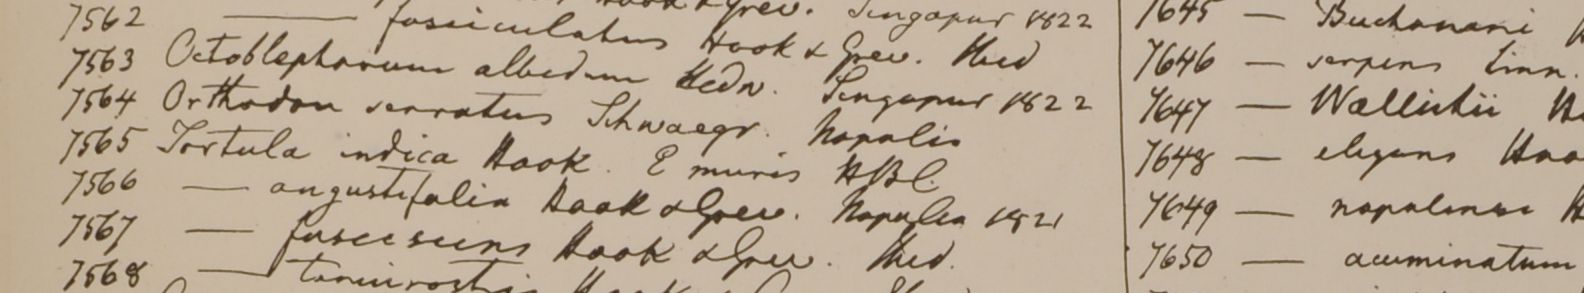 Hook & Grev. Singapur 1822
7562 — fasciculatus Hook & Grev. Ibid
7563 Octoblepharum albidum Hedw. Singapur 1822
7564 Orthodon serratus Schwaegr. Napalia
7565 Tortula indica Hook. E muris HBC.
7566 — angustifolia Hook & Grev. Napalia 1821
7567 — fuscescens Hook & Grev. Ibid.
7568 — tenuirostris Hook
7645 — Buchanani
7646 — serpens Linn.
7647 — Wallichii
7648 — elegans Hoo
7649 — napalense
7650 — acuminatum